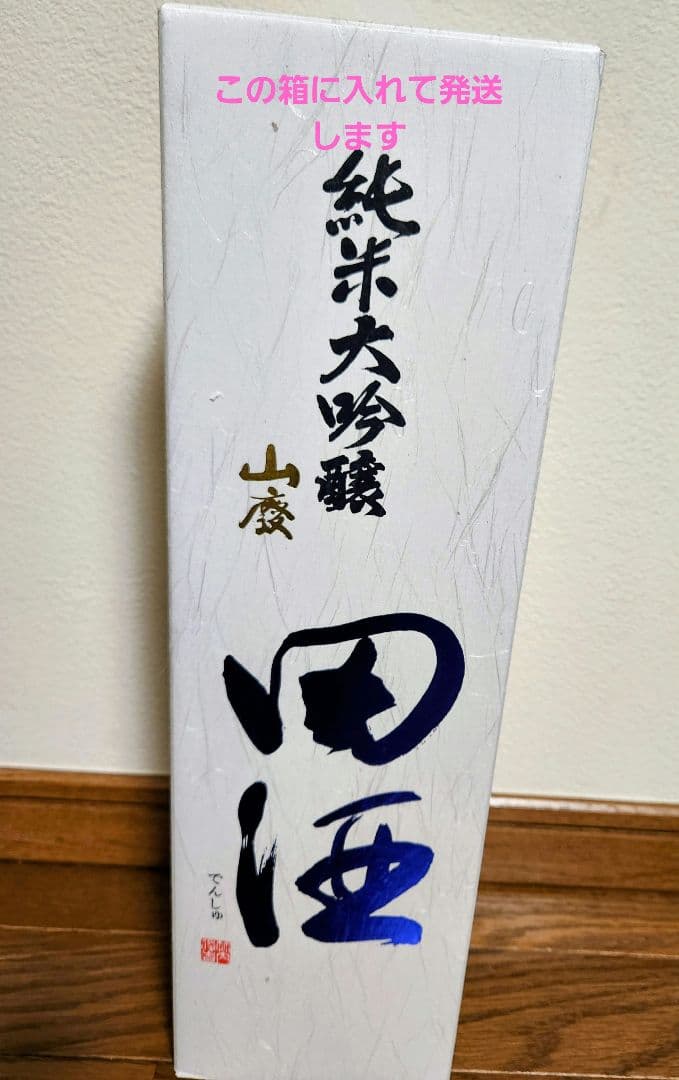 この箱に入れて発送
します
純米大吟醸
山廢
田酒
でんしゅ